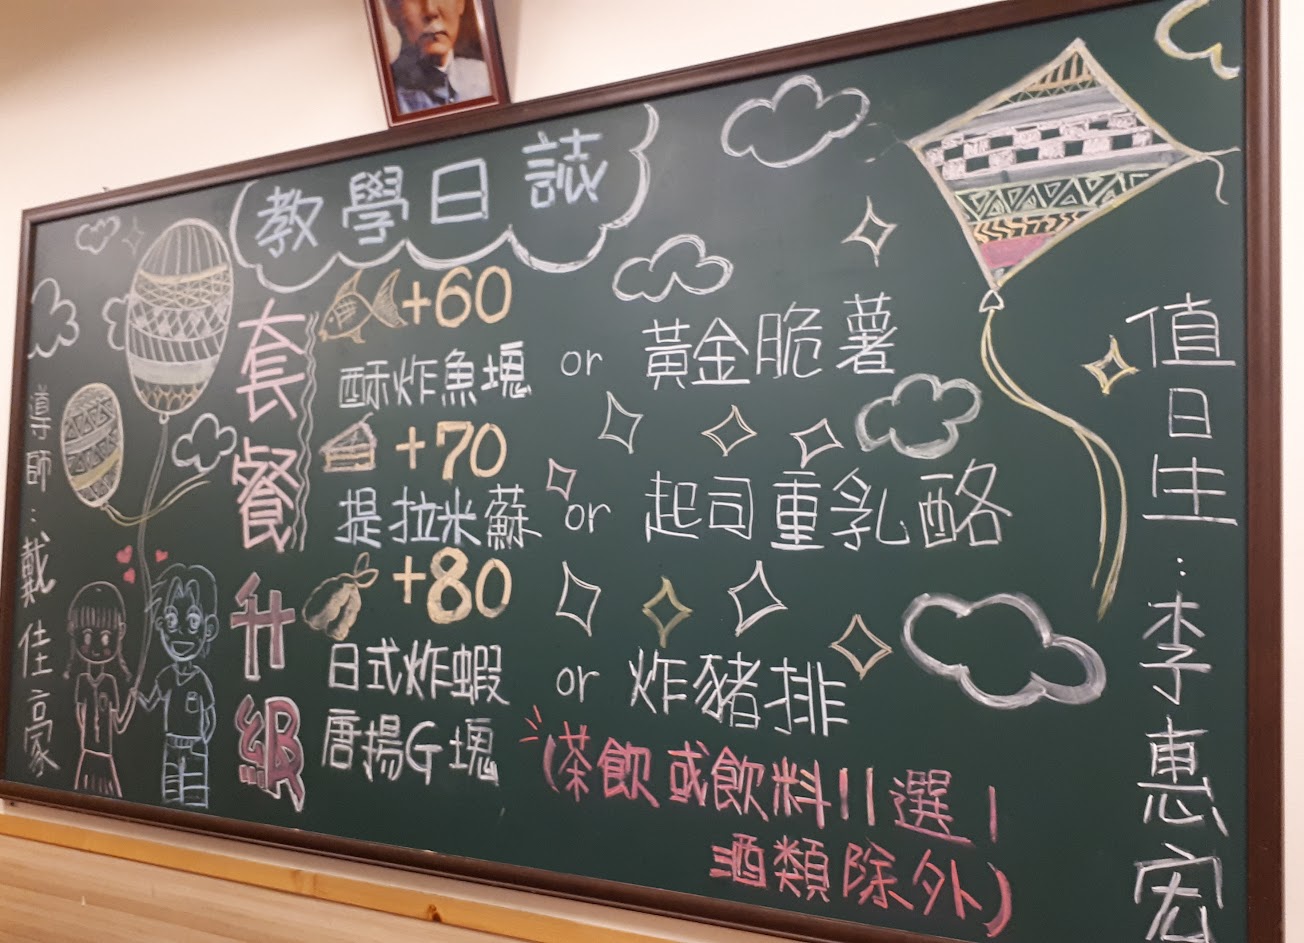 教學日誌
套餐升級
+60
酥炸魚塊 or 黃金脆薯
+70
提拉米蘇 or 起司重乳酪
+80
日式炸蝦 or 炸豬排
唐揚G塊
(茶飲或飲料II選I
酒類除外)
導師:戴佳豪
值日生:李惠宏